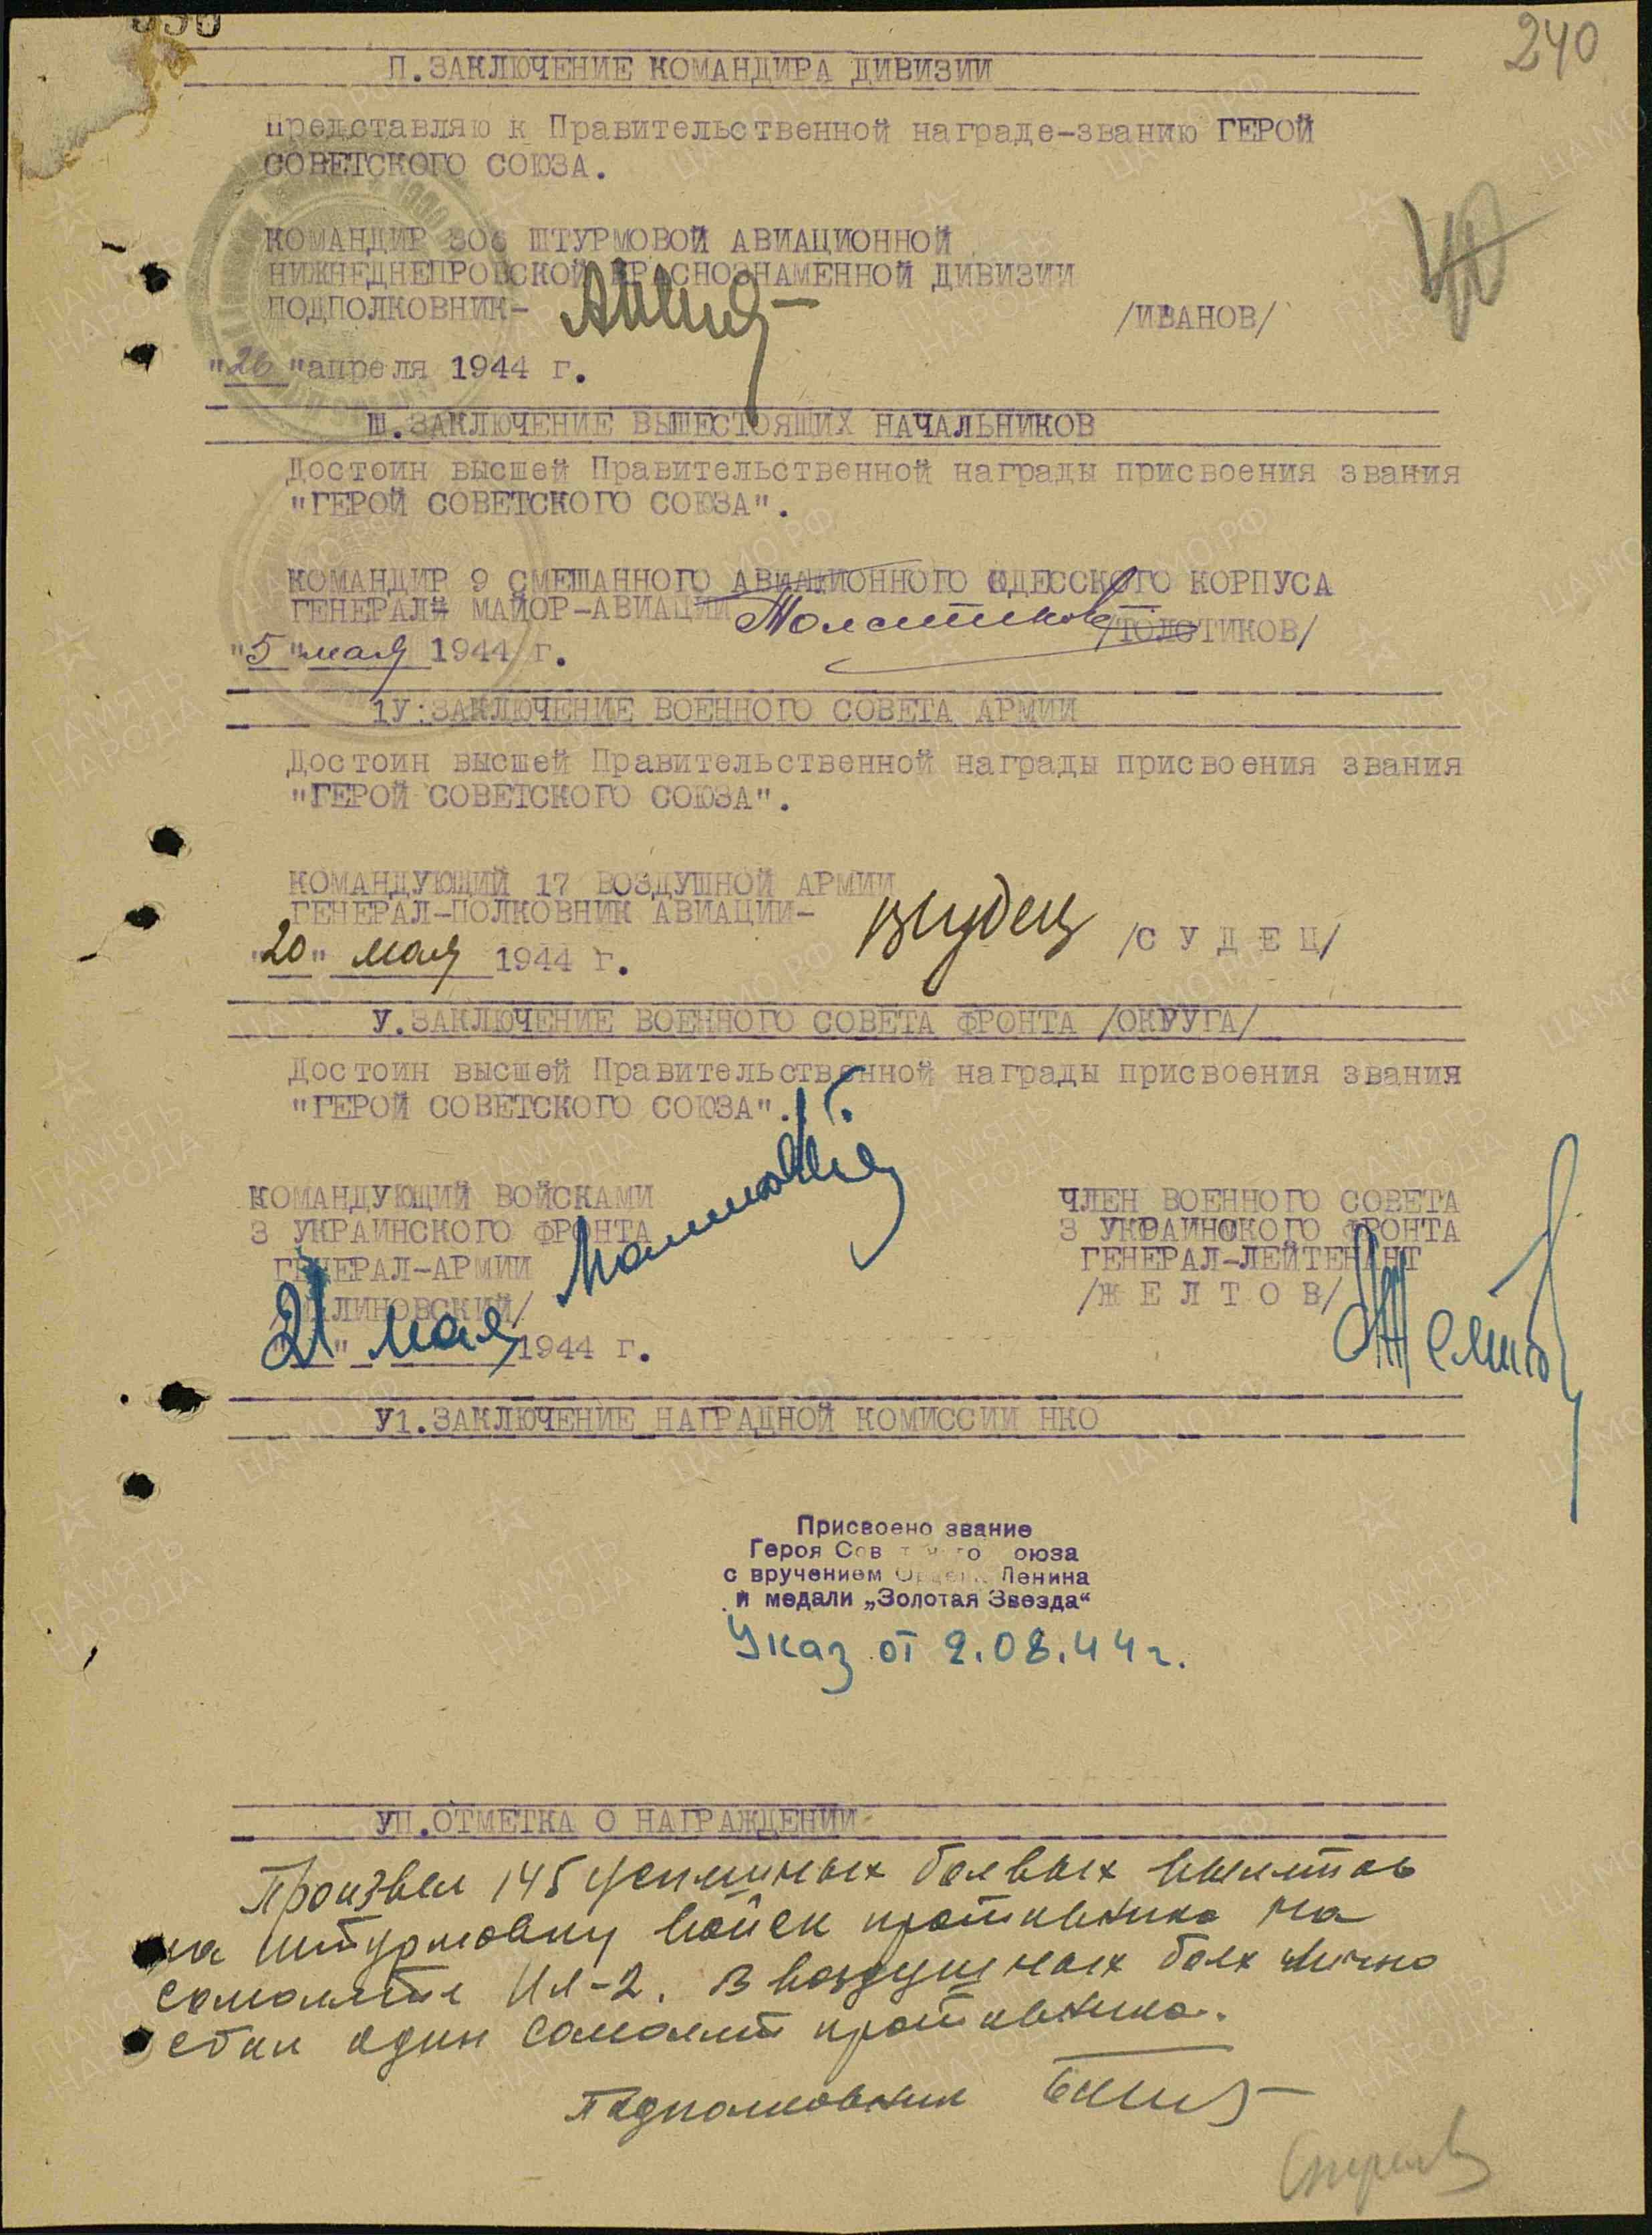 240
П.ЗАКЛЮЧЕНИЕ КОМАНДИРА ДИВИЗИИ
Представляю к Правительственной награде-званию ГЕРОЙ
СОВЕТСКОГО СОЮЗА.
КОМАНДИР 306 ШТУРМОВОЙ АВИАЦИОННОЙ
НИЖНЕДНЕПРОВСКОЙ КРАСНОЗНАМЕННОЙ ДИВИЗИИ
ПОДПОЛКОВНИК- /ИВАНОВ/
"26" апреля 1944 г.
Ш.ЗАКЛЮЧЕНИЕ ВЫШЕСТОЯЩИХ НАЧАЛЬНИКОВ
Достоин высшей Правительственной награды присвоения звания
"ГЕРОЙ СОВЕТСКОГО СОЮЗА".
КОМАНДИР 9 СМЕШАННОГО АВИАЦИОННОГО ОДЕССКОГО КОРПУСА
ГЕНЕРАЛ МАЙОР-АВИАЦИИ Толстиков /ТОЛСТИКОВ/
"5" мая 1944 г.
1У:ЗАКЛЮЧЕНИЕ ВОЕННОГО СОВЕТА АРМИИ
Достоин высшей Правительственной награды присвоения звания
"ГЕРОЙ СОВЕТСКОГО СОЮЗА".
КОМАНДУЮЩИЙ 17 ВОЗДУШНОЙ АРМИИ
ГЕНЕРАЛ-ПОЛКОВНИК АВИАЦИИ- ВСудец /С У Д Е Ц/
"20" мая 1944 г.
У.ЗАКЛЮЧЕНИЕ ВОЕННОГО СОВЕТА ФРОНТА /ОКРУГА/
Достоин высшей Правительственной награды присвоения звания
"ГЕРОЙ СОВЕТСКОГО СОЮЗА".
КОМАНДУЮЩИЙ ВОЙСКАМИ ЧЛЕН ВОЕННОГО СОВЕТА
3 УКРАИНСКОГО ФРОНТА 3 УКРАИНСКОГО ФРОНТА
ГЕНЕРАЛ-АРМИИ Малиновский ГЕНЕРАЛ-ЛЕЙТЕНАНТ
/МАЛИНОВСКИЙ/ /Ж Е Л Т О В/ Желтов
"21" мая 1944 г.
У1.ЗАКЛЮЧЕНИЕ НАГРАДНОЙ КОМИССИИ НКО
Присвоено звание
Героя Советского Союза
с вручением Ордена Ленина
и медали „Золотая Звезда“
Указ от 2.08.44 г.
УП.ОТМЕТКА О НАГРАЖДЕНИИ
Произвел 145 успешных боевых вылетов
на штурмовку войск противника на
самолете Ил-2. В воздушных боях лично
сбил один самолет противника.
Подполковник